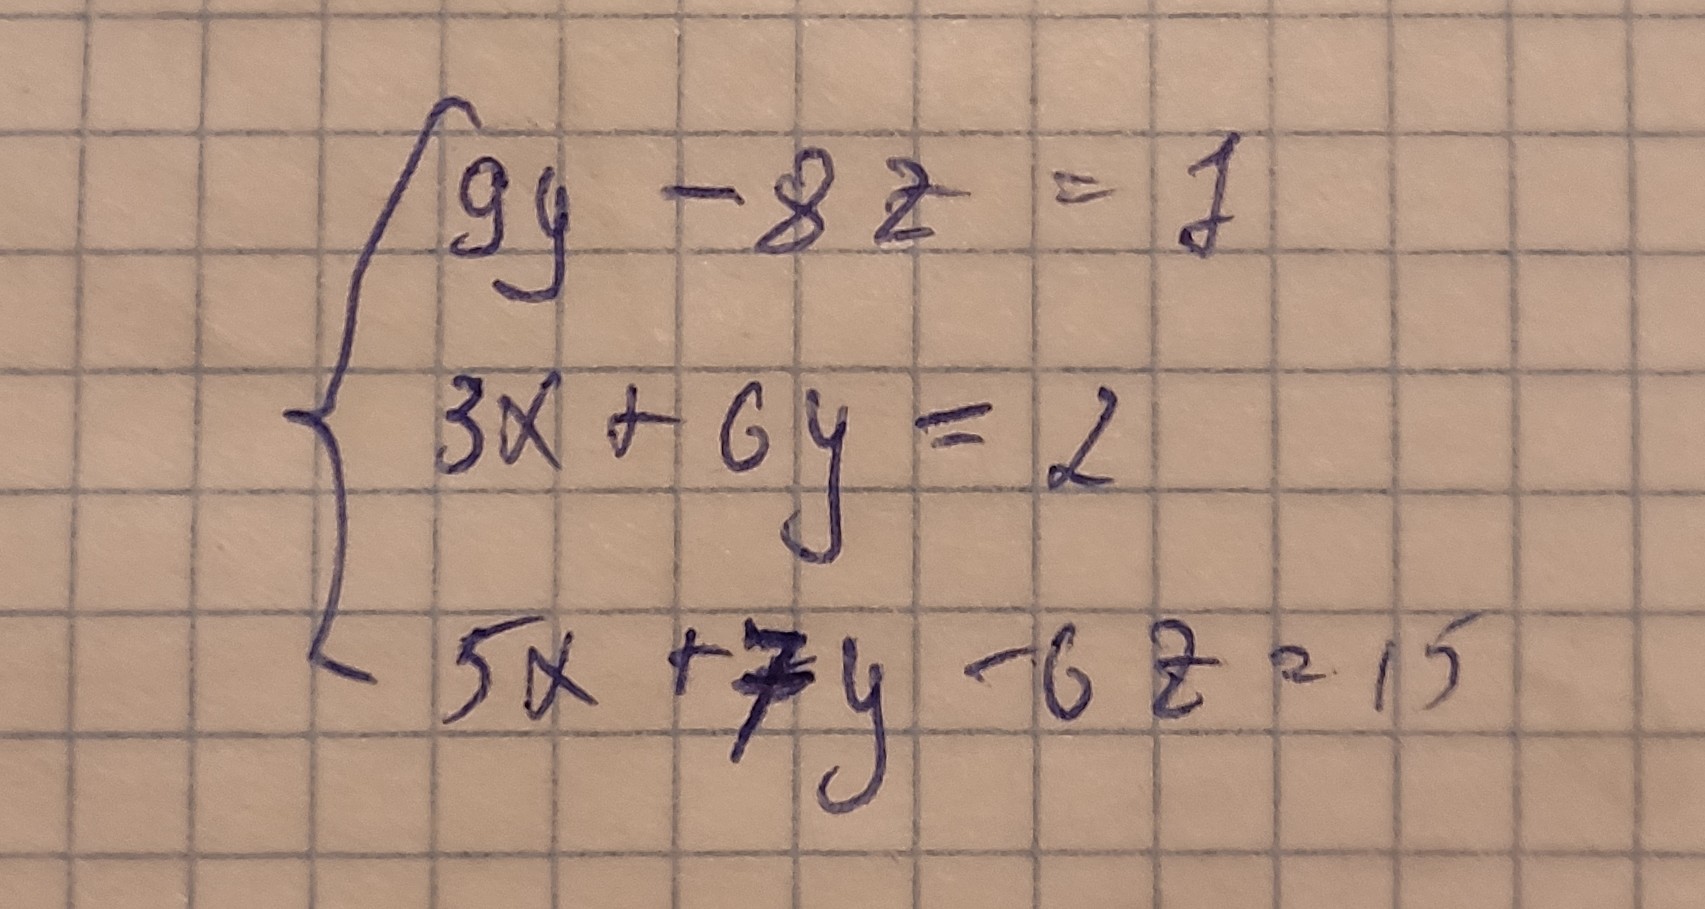 9y - 8z = 1
3x + 6y = 2
5x + 7y - 6z = 15